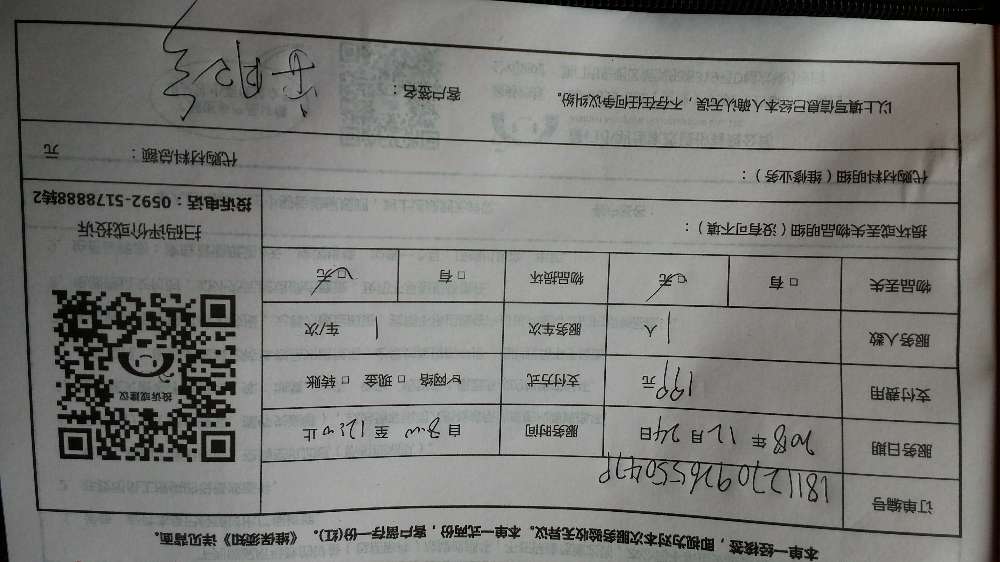 本单一经接签，即视为对本次服务验收无异议。本单一式两份，客户留存一份(红)。《维保须知》详见背面。
订单编号
服务日期 2018年12月24日 服务时间 自8:00至12:00止
支付费用 199元 支付方式 ☑网络 □现金 □转账
服务人数 1人 服务车次 1车/次
物品丢失 □有 ☑无 物品损坏 □有 ☑无
投诉或建议
扫码评价或投诉
投诉电话：0592-5178888转2
损坏或丢失物品明细（没有可不填）：
代购材料明细（维修业务）：
代购材料总额： 元
以上填写信息已经本人确认无误，不存在任何争议纠纷。 客户签名：